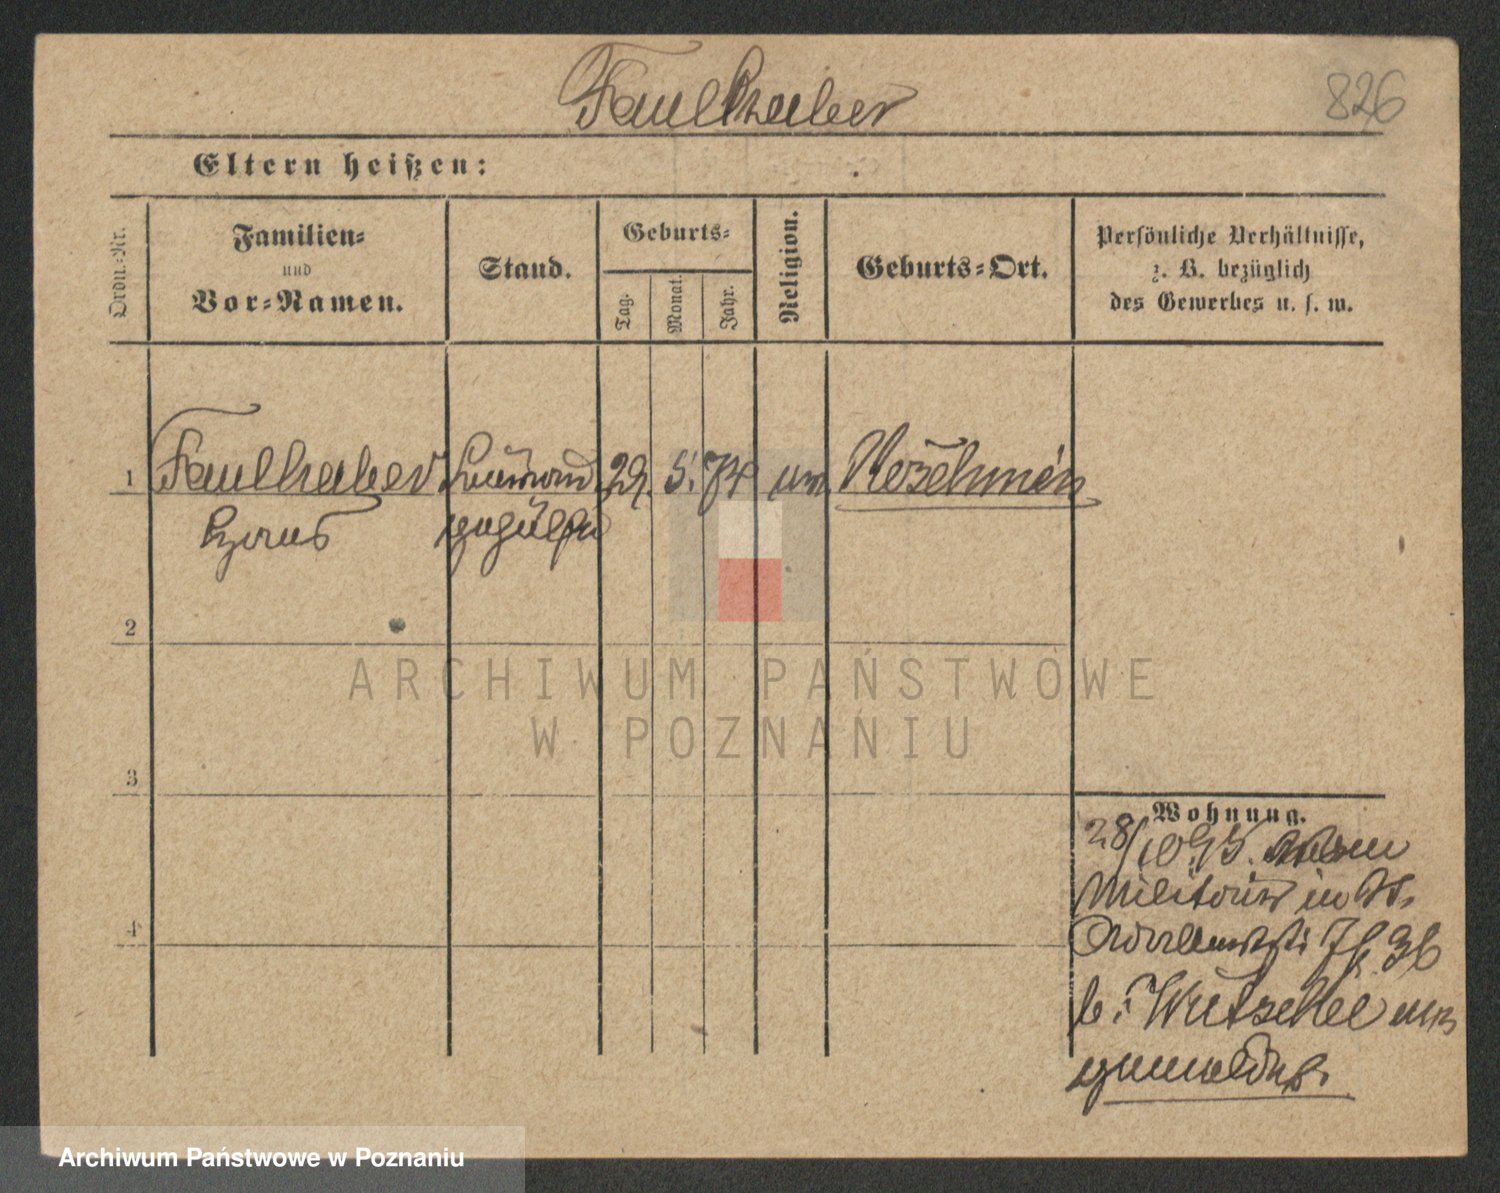 Faulhaber
826
Eltern heißen:
Ordn.-Nr.
Familien-
und
Vor-Namen.
Stand.
Geburts-
Tag.
Monat.
Jahr.
Religion.
Geburts-Ort.
Persönliche Verhältnisse,
z. B. bezüglich
des Gewerbes u. s. w.
1 Faulhaber 29. 5. 74
2
3
4
Wohnung.
28/10 95. vom
Militair in St.
36
b.
gemeldet.
ARCHIWUM PAŃSTWOWE
W POZNANIU
Archiwum Państwowe w Poznaniu